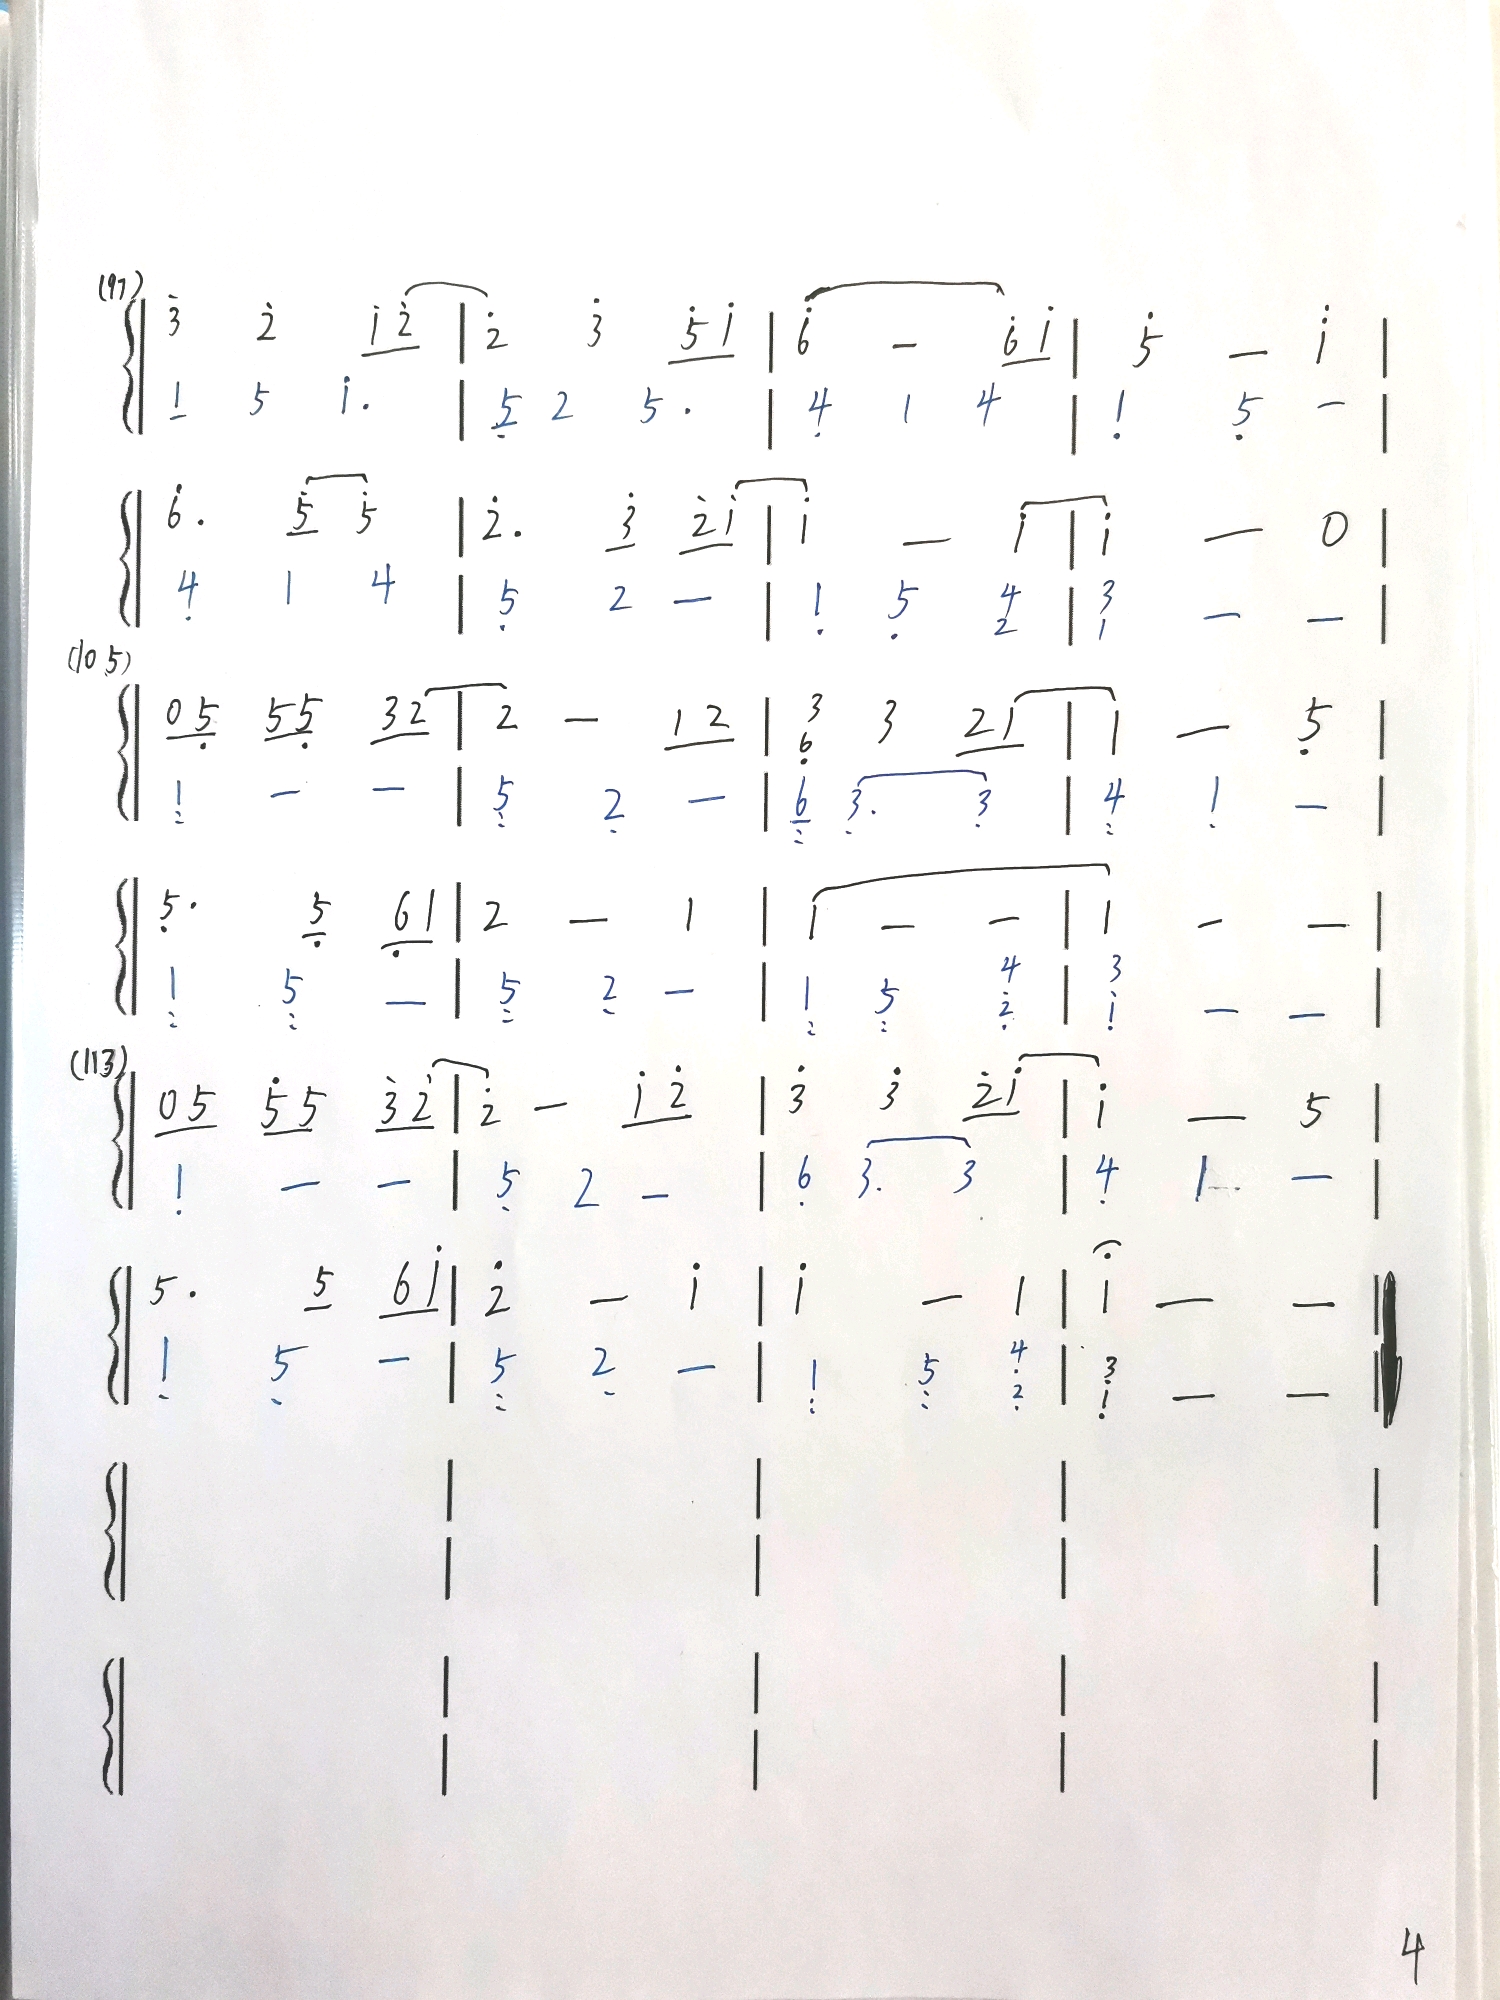 (97)
3̇ 2̇ 1̇ 2̇ | 2̇ 3̇ 5̇ 1̇ | 6̇ — 6̇ 1̇ | 5̇ — 1̇ |
1 5 1̇. | 5 2 5. | 4 1 4 | 1 5 — |
6̇. 5̇ 5̇ | 2̇. 3̇ 2̇ 1̇ | 1̇ — 1̇ | 1̇ — 0 |
4 1 4 | 5 2 — | 1 5 4 2 | 3 1 — — |
(105)
0 5 5 5 3 2 | 2 — 1 2 | 3 6 3 2 1 | 1 — 5 |
1 — — | 5 2 — | 6 3. 3 | 4 1 — |
5. 5 6 1 | 2 — 1 | 1 — — | 1 — — |
1 5 — | 5 2 — | 1 5 4 2 | 3 1 — — |
(113)
0 5 5̇ 5 3̇ 2̇ | 2̇ — 1̇ 2̇ | 3̇ 3̇ 2̇ 1̇ | 1̇ — 5 |
1 — — | 5 2 — | 6 3. 3 | 4 1 — |
5. 5 6 1̇ | 2̇ — 1̇ | 1̇ — 1 | 1 — — |
1 5 — | 5 2 — | 1 5 4 2 | 3 1 — — |
4